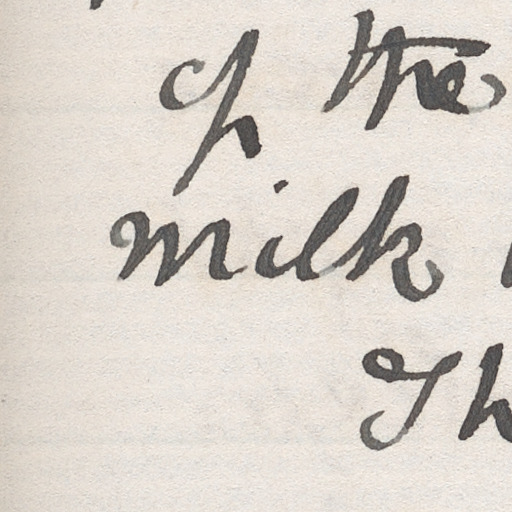 of the
milk
Th